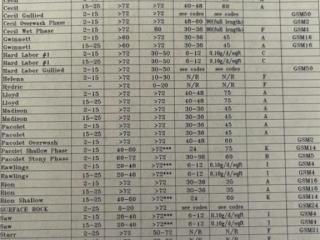 Cecil 15-25 >72 >72 40-48 60 A
Cecil Gullied 2-15 >72 >72 see codes see codes GSM50
Cecil Overwash Phase 2-15 >72 >72 GSM2
Cecil Wet Phase 2-15 60 30-36 F GSM1
Gwinnett 2-15 >60 >72 30-36 45 A GSM16
Gwinnett 15-25 >60 >72 36 45 A GSM16
Hard Labor #1 2-15 >72 30-50 6-12 0.10g/d/sqft I
Hard Labor #1 15-25 >72 30-50 6-12 C
Hard Labor Gullied 2-15 >72 >72 see codes see codes GSM50
Helena 2-15 >72 10-30 N/R N/R F
Hydric — >72 0-20 N/R N/R F
Lloyd 2-15 >72 >72 40-48 75 A
Lloyd 15-25 >72 >72 40-48 75 A
Madison 2-15 >72 >72 30-36 45 A
Madison 15-25 >72 >72 30-36 45 A
Pacolet 2-15 >72 >72 30-36 45 A
Pacolet 15-25 >72 >72 30-36 45 A
Pacolet Overwash 2-15 >72 >72 40-48 60 GSM2
Pacolet Shallow Phase 2-15 40-60 >72*** 24 75 K GSM14
Pacolet Stony Phase 2-15 60-80 >72 30-36 60 B GSM5
Rawlings 2-15 20-40 >72*** 6-12 0.10g/d/sqft I GSM4
Rawlings 15-25 20-40 >72*** 6-12 0.10g/d/sqft I GSM4
Rion 2-15 >72 >72 30-36 45 A GSM16
Rion 15-25 >72 >72 30-36 45 A GSM16
Rion Shallow 2-15 40-60 >72*** 24 60 K GSM14
SURFACE ROCK 2-25 0-20 >72 see codes see codes GSM21
Saw 2-15 20-40 >72*** 6-12 0.10g/d/sqft I GSM4
Saw 15-25 20-40 >72*** 6-12 0.10g/d/sqft I
Starr 2-15 >72 50-72 N/R N/R F